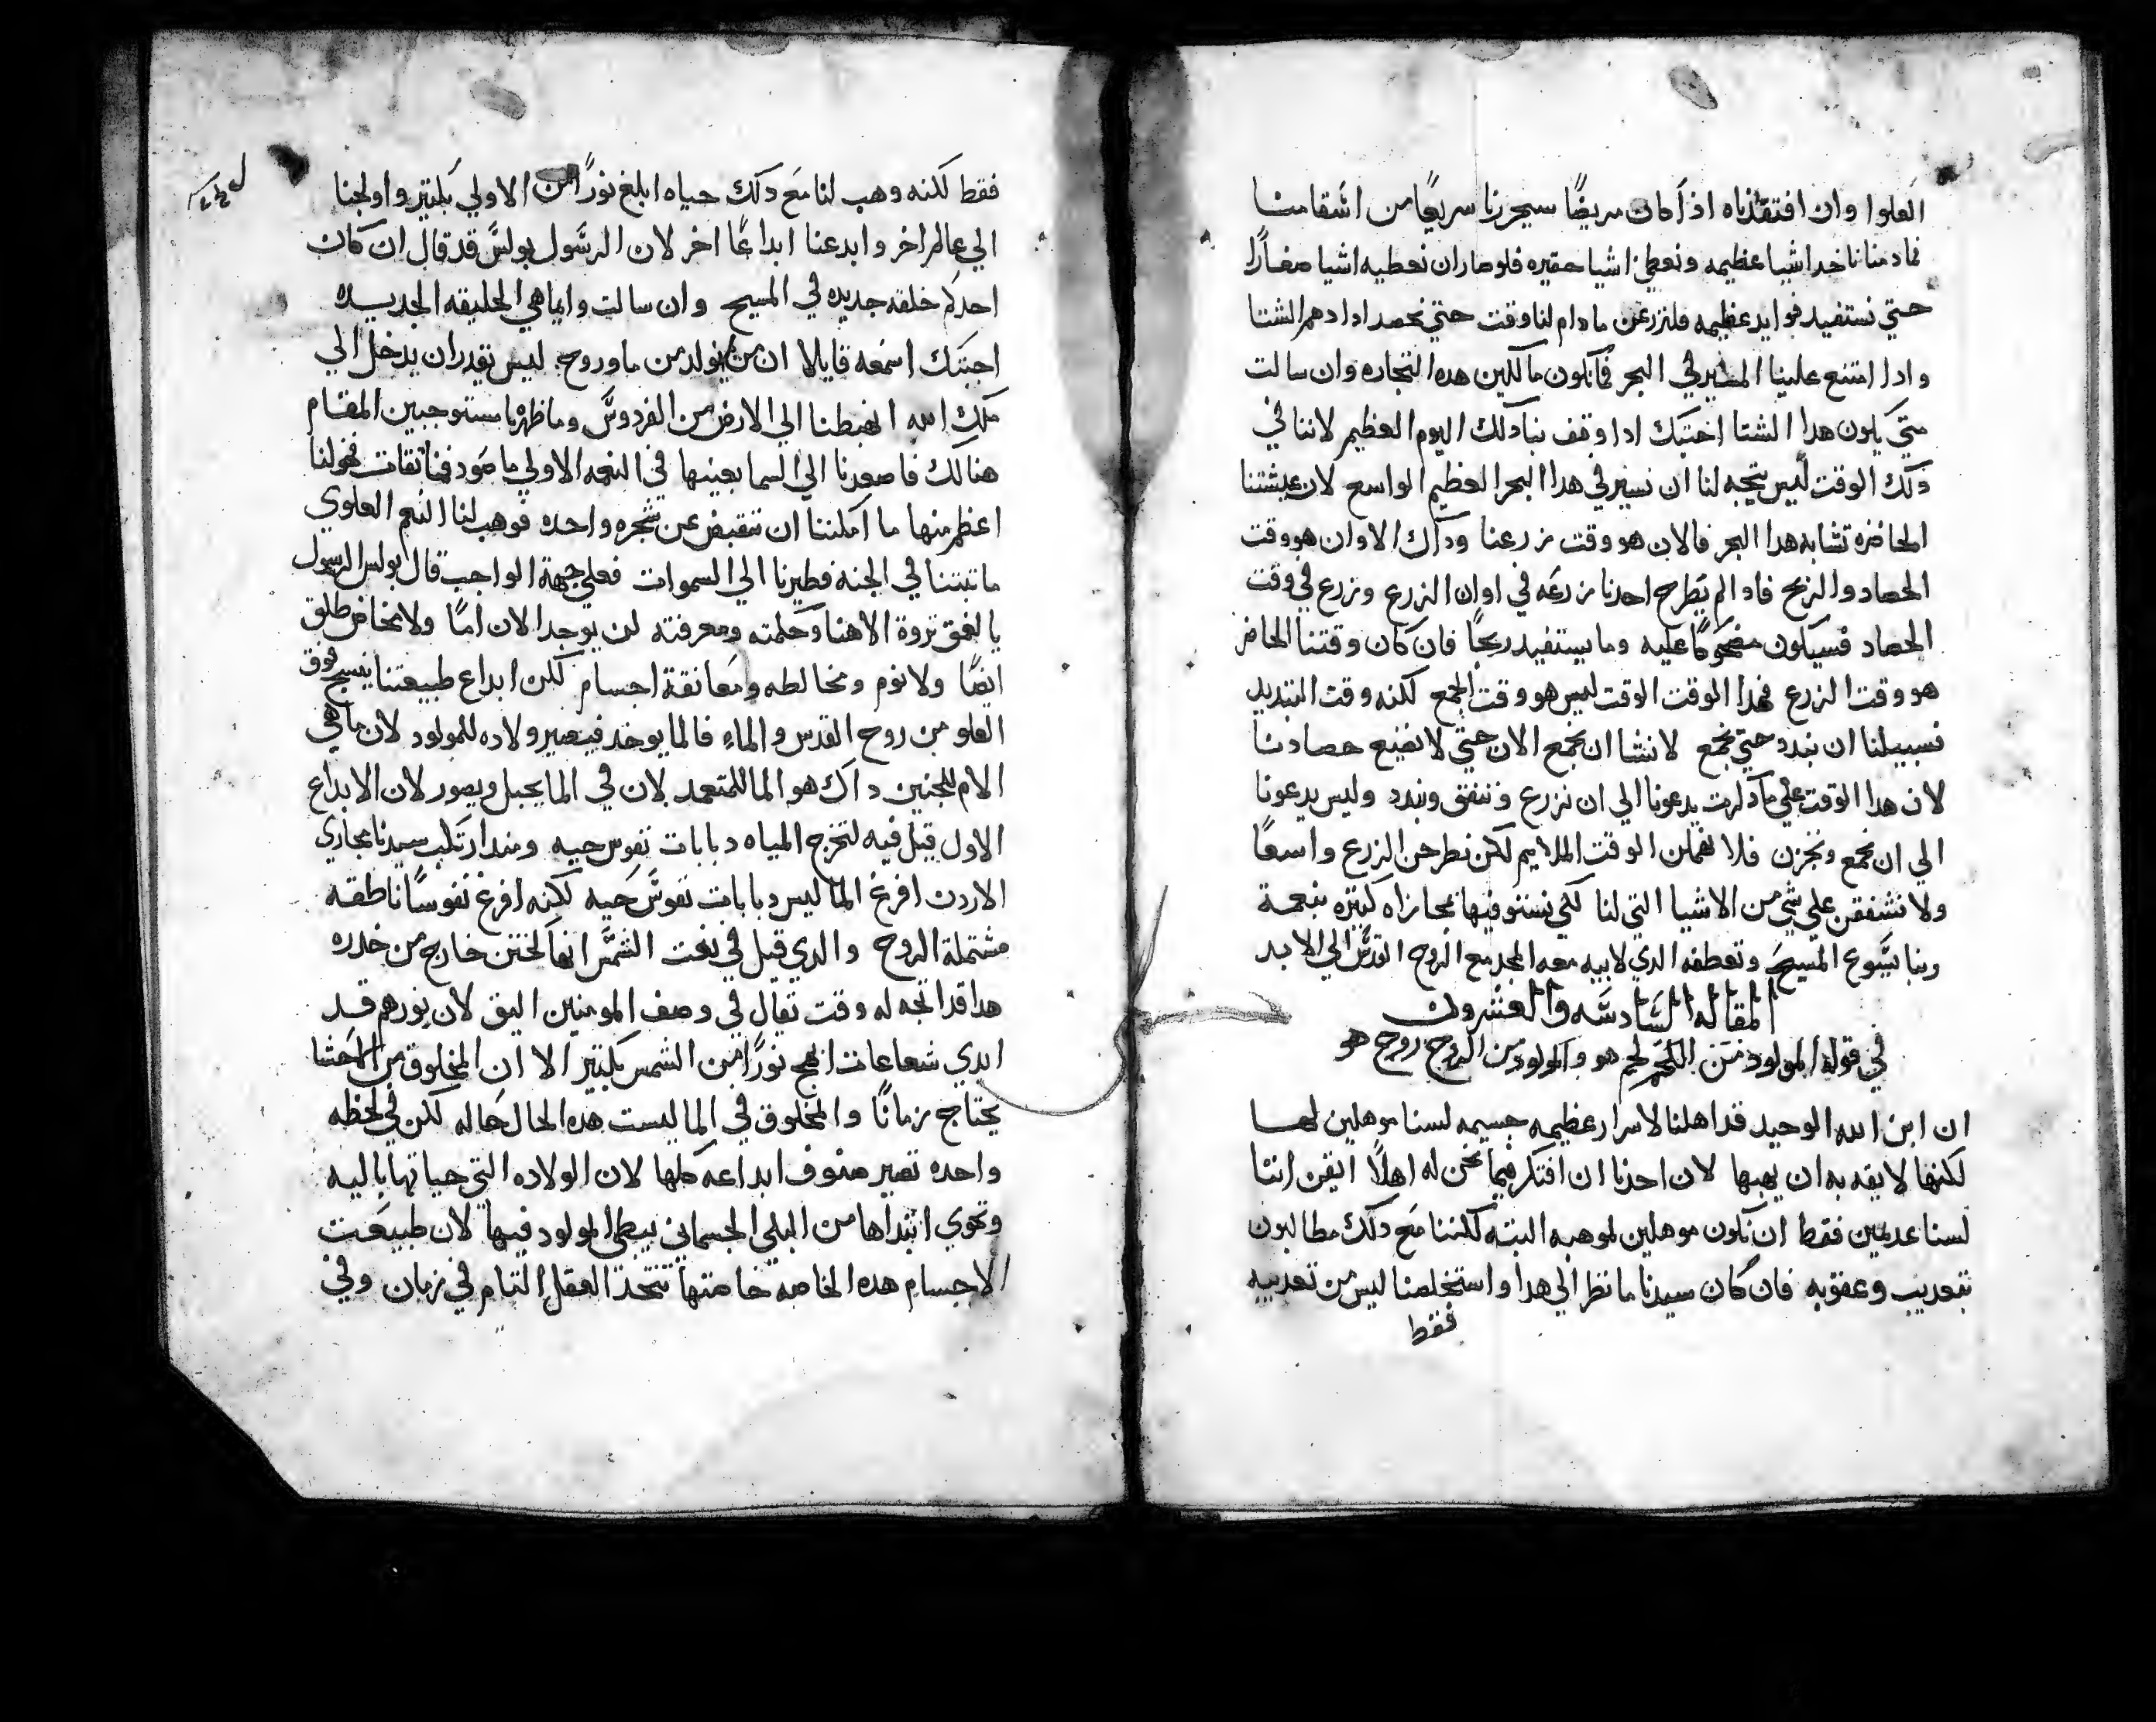 العلوا وان افتقدناه اذا كان مريضًا سيحررنا سريعًا من اشقامنا
فاد مننا ناخد اشيا عظيمه ونعطي اشيا حقيره فلوصاران نعطيه اشيا صغارًا
حتي نستفيد فوايد عظيمه فلنزرعن مادام لنا وقت حتي نحصد ادا دهم الشتا
وادا امتنع علينا المسير في البحر فانكون مالكين هده التجاره وان سالت
متي يكون هدا الشتا اجبتك ادا وقف بنا دلك اليوم العظيم لاننا في
ذلك الوقت ليس يتجه لنا ان نسير في هدا البحر العظيم الواسع لان عيشتنا
الحاضره تشابه هدا البحر فالان هو وقت زرعنا وداك الاوان هو وقت
الحصاد والربح فاد الم يطرح احدنا زرعه في اوان الزرع وزرع في وقت
الحصاد فسيكون مضحوكًا عليه وما يستفيد ربحًا فان كان وقتنا الحاضر
هو وقت الزرع فهدا الوقت الوقت ليس هو وقت الجمع لكنه وقت التبديد
فسبيلنا ان نبدد حتي نجمع لا نشا ان نجمع الان حتي لا نضيع حصادنا
لان هدا الوقت علي ما دكرت يدعونا الي ان نزرع وننفق ونبدد وليس يدعونا
الي ان نجمع ونخزن فلا نهملن الوقت الملايم لكن نطرحن الزرع واسعًا
ولا نشفقن علي شي من الاشيا التي لنا لكي نستوفيها بمجازاه كتيره بنعمة
ربنا يسوع المسيح وتعطفه الدي لابيه معه المجد مع الروح القدس الي الابد
المقاله السادسه والعشرون
في قوله المولود من اللحم لحم هو والمولود من الروح روح هو
ان ابن الله الوحيد قد اهلنا لاسرار عظيمه جسيمه لسنا موهلين لها
لكنها لايقه به ان يهبها لان احدنا ان افتكر فيما نحن له اهلًا ايقن اننا
لسنا عديمين فقط ان نكون موهلين لموهبه البته لكننا مع دلك مطالبون
بتعديب وعقوبه فان كان سيدنا ما نظر الي هدا واستخلصنا ليس من تعديبه
فقط
فقط لكنه وهب لنا مع دلك حياه ابلغ نورًا من الاولي بكتير واولجنا
الي عالم اخر وابدعنا ابداعًا اخر لان الرسول بولس قد قال ان كان
احدكم خلقه جديده في المسيح وان سالت وايما هي الخليقه الجديده
اجبتك اسمعه قايلا ان من يولد من ما وروح ليس يقدر ان يدخل الي
ملك الله انهبطنا الي الارض من الفردوس وما ظهرنا مستوجبين المقام
هنالك فاصعدنا الي السما بعينها في النعمه الاولي ما صودفنا تقات فخولنا
اعظم منها ما امكننا ان ننقبض عن شجره واحده فوهب لنا النعم العلوي
ما تبتنا في الجنه فطيرنا الي السموات فعلي جهة الواجب قال بولس الرسول
يا لعمق تروة الاهنا وحكمته ومعرفته لن يوجد الان امًا ولا مخاض طلق
ايضًا ولا نوم ومخالطه ومعانقة اجسام لكن ابداع طبيعتنا ينسج فوق
العلو من روح القدس والماء فالما يوخد فيصير ولاده للمولود لان ما هي
الام للجنين داك هو الما للمتعمد لان في الما يجبل ويصور لان الابداع
الاول قيل فيه لتخرج المياه دبابات نفوس حيه ومند ارتكب سيدنا مجاري
الاردن افرغ الما ليس دبابات نفوس حيه لكنه افرغ نفوسًا ناطقه
مشتملة الروح والدي قيل في نعت الشمس انها كختن خارج من خدره
هدا قد اتجه له وقت تقال في وصف المومنين اليق لان نورهم قد
ابدي شعاعات ابهج نورًا من الشمس بكتير الا ان المخلوق من الحشا
يحتاج زمانًا والمخلوق في الما ليست هده الحال حاله لكن في لحظه
واحده تصير صنوف ابداعه كلها لان الولاده التي حياتها باليه
وتحوي ابتداها من البلي الجسماني يبطي المولود فيها لان طبيعت
الاجسام هده الخاصه خاصتها تتخد العقل التام في زمان وفي